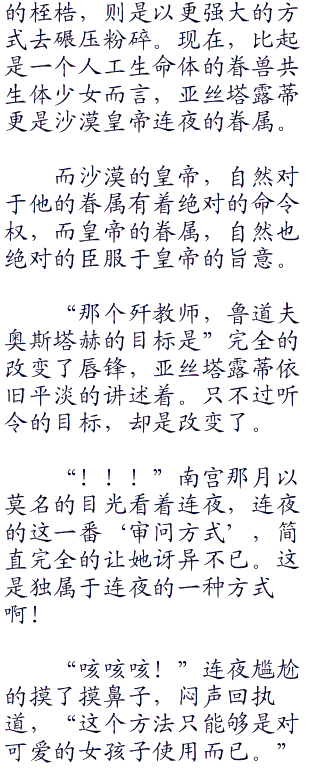 的桎梏，则是以更强大的方
式去碾压粉碎。现在，比起
是一个人工生命体的眷兽共
生体少女而言，亚丝塔露蒂
更是沙漠皇帝连夜的眷属。
而沙漠的皇帝，自然对
于他的眷属有着绝对的命令
权，而皇帝的眷属，自然也
绝对的臣服于皇帝的旨意。
“那个歼教师，鲁道夫
奥斯塔赫的目标是”完全的
改变了唇锋，亚丝塔露蒂依
旧平淡的讲述着。只不过听
令的目标，却是改变了。
“！！！”南宫那月以
莫名的目光看着连夜，连夜
的这一番‘审问方式’，简
直完全的让她讶异不已。这
是独属于连夜的一种方式
啊！
“咳咳咳！”连夜尴尬
的摸了摸鼻子，闷声回执
道，“这个方法只能够是对
可爱的女孩子使用而已。”